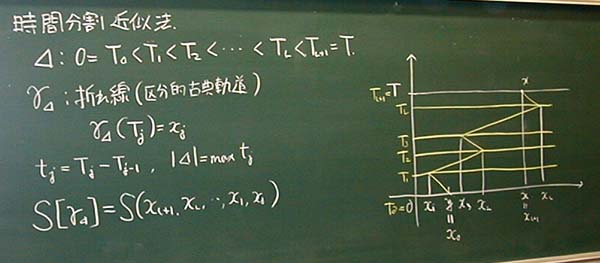 時間分割近似法.
Δ : 0 = T₀ < T₁ < T₂ < ⋯ < T_L < T_{L+1} = T.
γ_Δ : 折れ線 (区分的古典軌道)
γ_Δ(T_j) = x_j
t_j = T_j - T_{j-1} , |Δ| = max t_j
S[γ_Δ] = S(x_{L+1}, x_L, ⋯, x_1, x_0)
T_{L+1} = T
x
T_L
T_3
T_2
T_1
T_0 = 0
x_1 y x_3 x_2 x x_L
|| ||
x_0 x_{L+1}